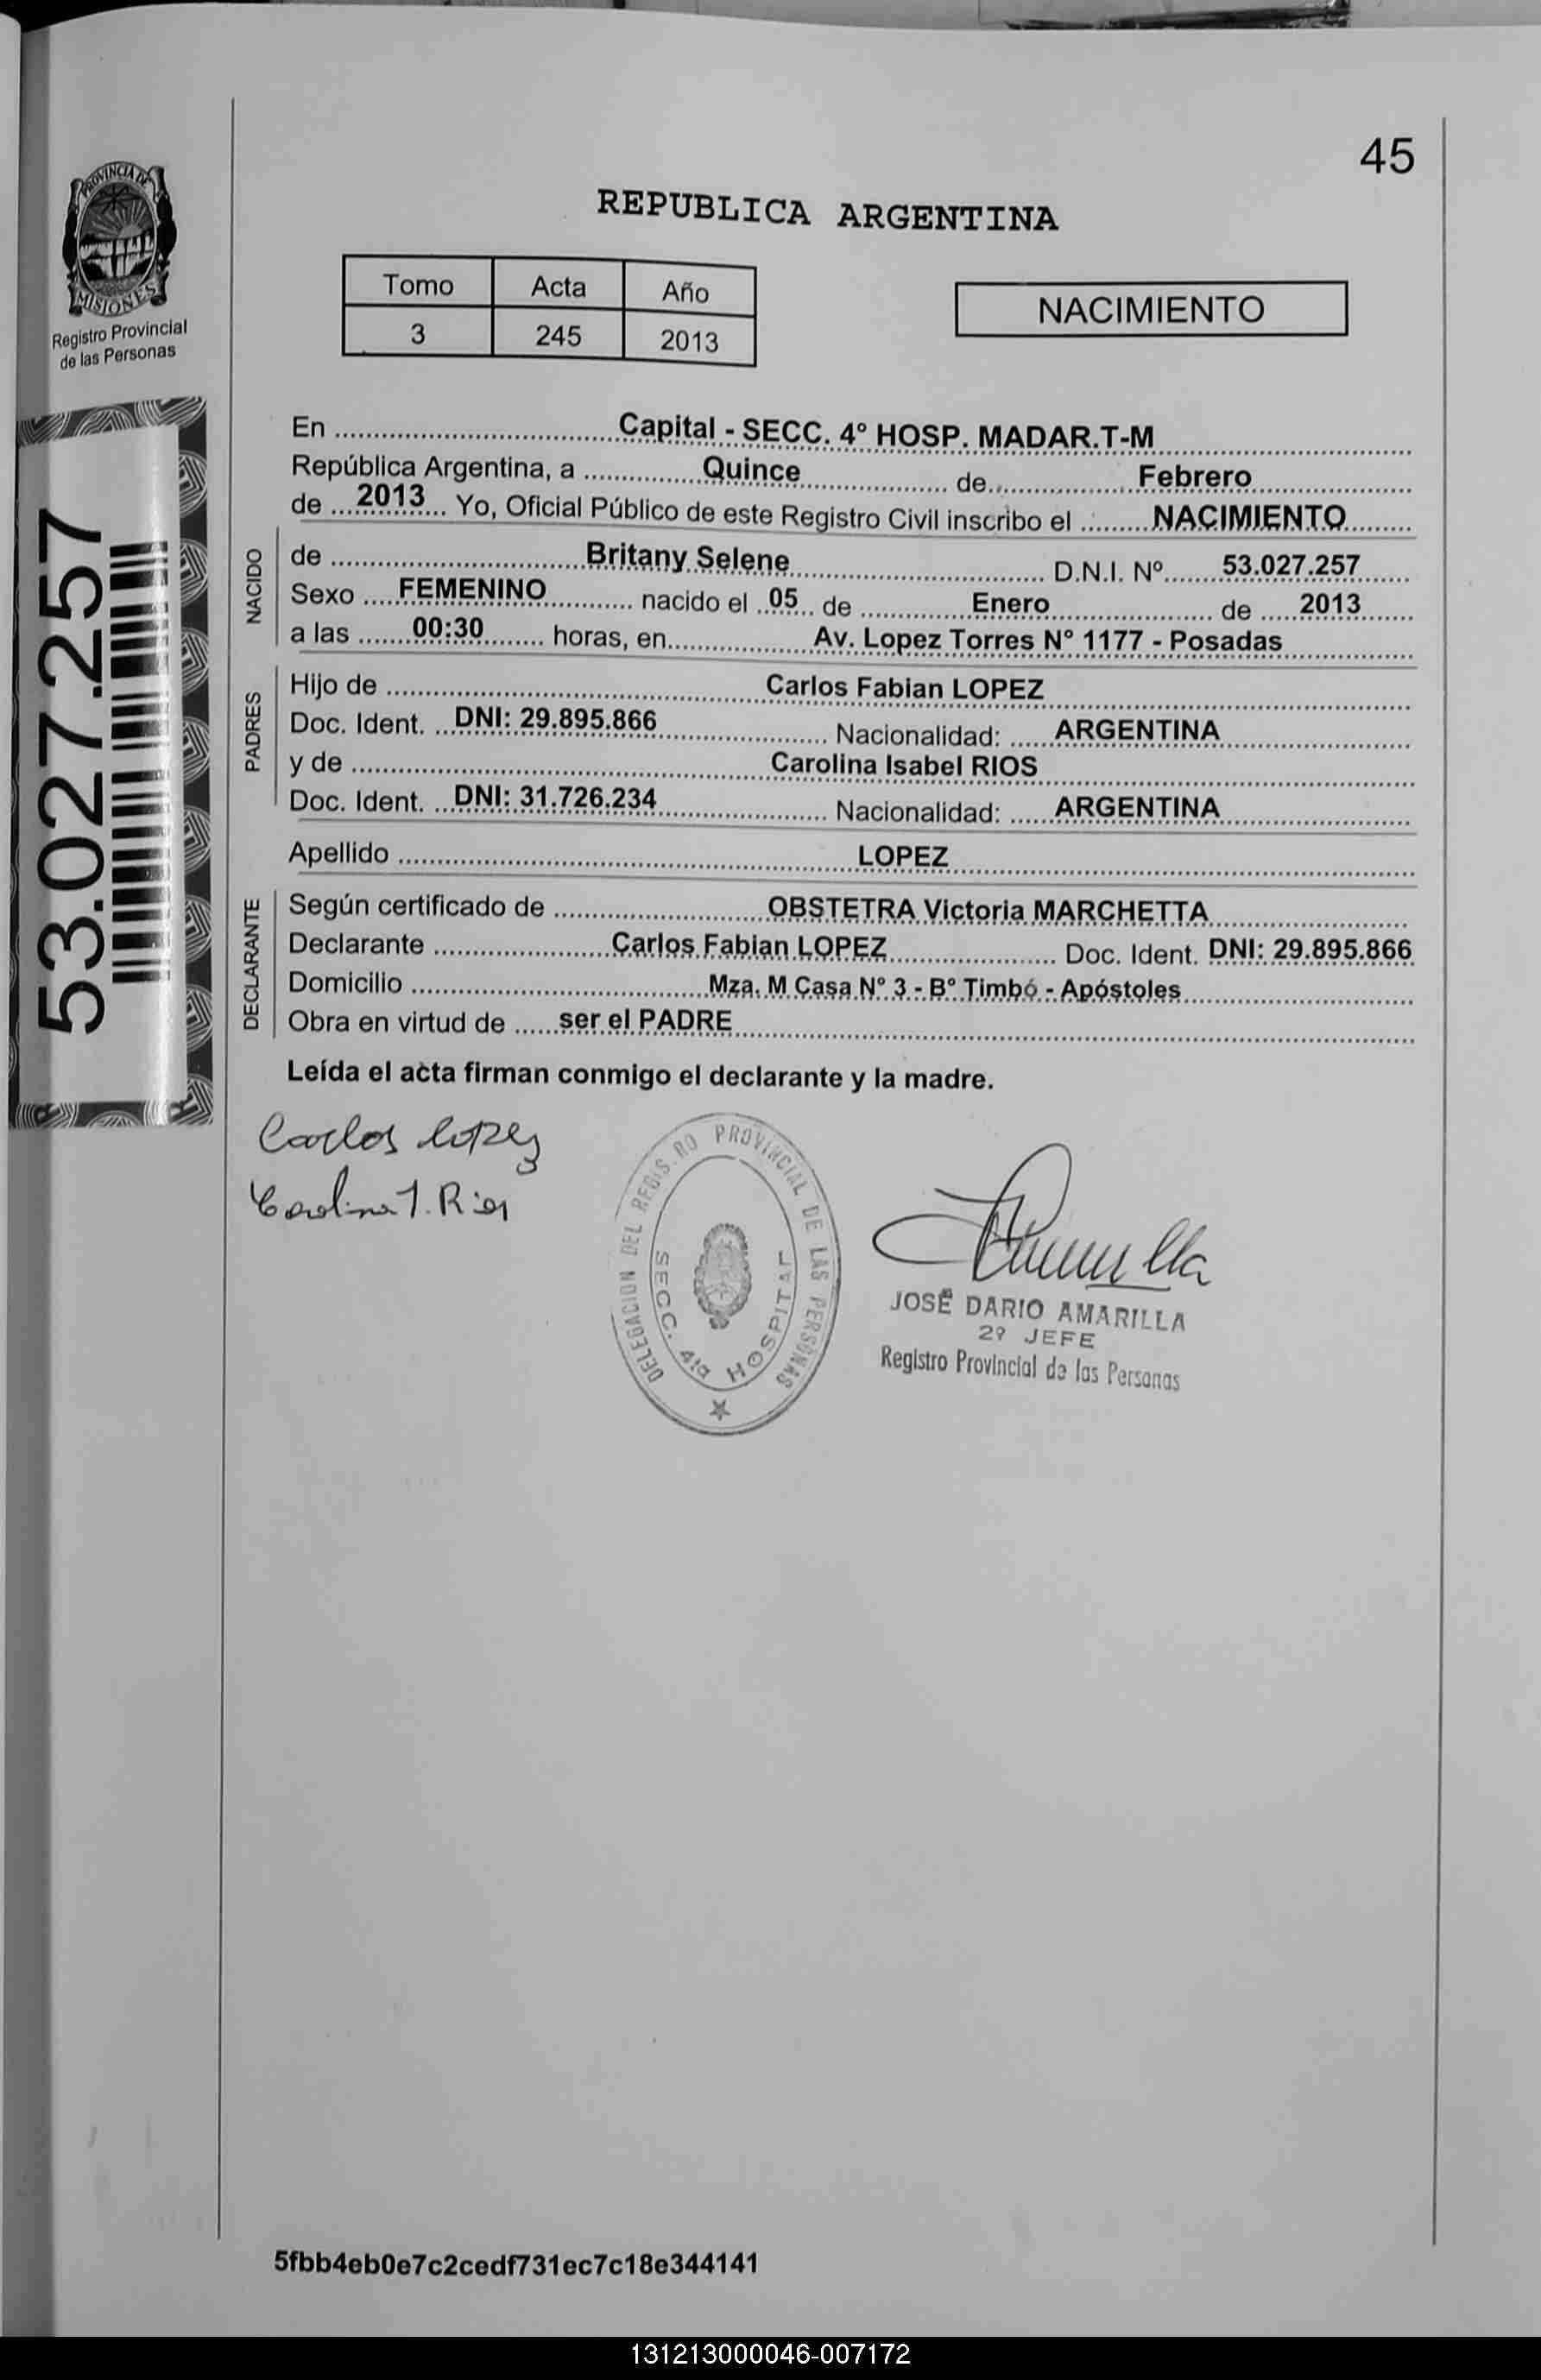 45
PROVINCIA DE
MISIONES
Registro Provincial
de las Personas
REPUBLICA ARGENTINA
Tomo Acta Año
3 245 2013
NACIMIENTO
53.027.257
En Capital - SECC. 4º HOSP. MADAR.T-M
República Argentina, a Quince de Febrero
de 2013 Yo, Oficial Público de este Registro Civil inscribo el NACIMIENTO
NACIDO
de Britany Selene D.N.I. Nº 53.027.257
Sexo FEMENINO nacido el 05 de Enero de 2013
a las 00:30 horas, en Av. Lopez Torres N° 1177 - Posadas
PADRES
Hijo de Carlos Fabian LOPEZ
Doc. Ident. DNI: 29.895.866 Nacionalidad: ARGENTINA
y de Carolina Isabel RIOS
Doc. Ident. DNI: 31.726.234 Nacionalidad: ARGENTINA
Apellido LOPEZ
DECLARANTE
Según certificado de OBSTETRA Victoria MARCHETTA
Declarante Carlos Fabian LOPEZ Doc. Ident. DNI: 29.895.866
Domicilio Mza. M Casa N° 3 - B° Timbó - Apóstoles
Obra en virtud de ser el PADRE
Leída el acta firman conmigo el declarante y la madre.
Carlos Lopez
Carolina I. Rios
DELEGACION DEL REGISTRO PROVINCIAL DE LAS PERSONAS
SECC. 4ta HOSPITAL
JOSÉ DARIO AMARILLA
2º JEFE
Registro Provincial de las Personas
5fbb4eb0e7c2cedf731ec7c18e344141
131213000046-007172